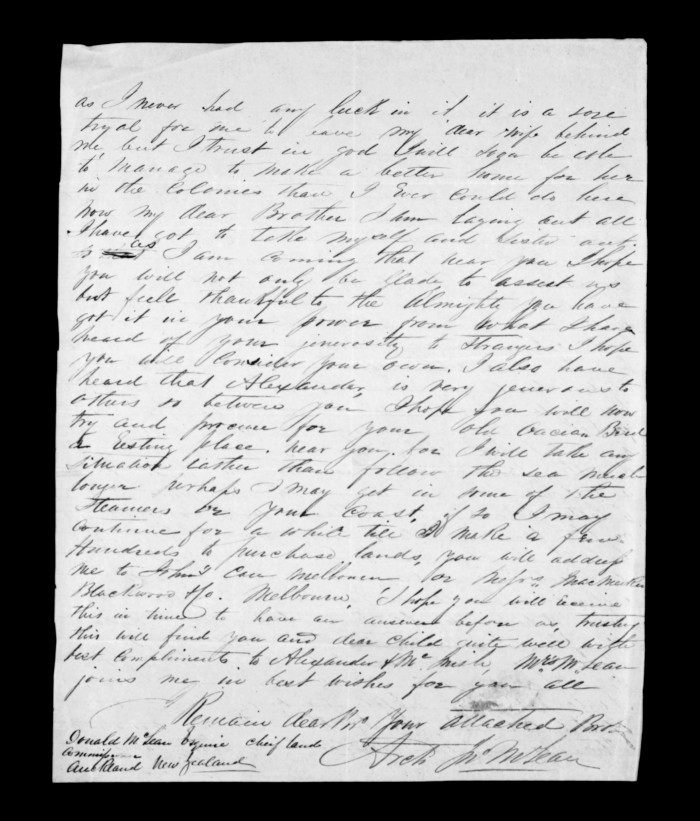 as I never had any luck in it it is a sore
tryal for me to leave my dear wife behind
me but I trust in god I will soon be able
to manage to make a better home for her
in the Colonies than I Ever could do here
now my dear Brother I am laying out all
I have got to take myself and sister out.
as I am coming that near you I hope
you will not only be glade to assist us
but feell thankful to the Almighty you have
got it in your power from what I have
heard of your generosity to strangers I hope
you will consider your own. I also have
heard that Alexander, is very generous to
others so between you I hope you will now
try and procure for your old Ocian Bird
a Resting place. near you. for I will take any
situation rather than follow the sea much
longer perhaps I may get in some of the
Steamers on your Coast, if so I may
Continue for a while till I make a few
Hundreds to purchase lands, you will address
me to Melbourn or Messrs MacMeckan
Blackwood & Co. Melbourne, I hope you will receive
this in time to have an answer before us, trusting
this will find you and dear child quite well with
best compliments to Alexander & Mrs McLean
joins me in best wishes for you all
Remain dear Br. Your attached Brother
Arch Jn. McLean
Donald McLean Esquire Cheif land
Commiss
Auckland New Zealand